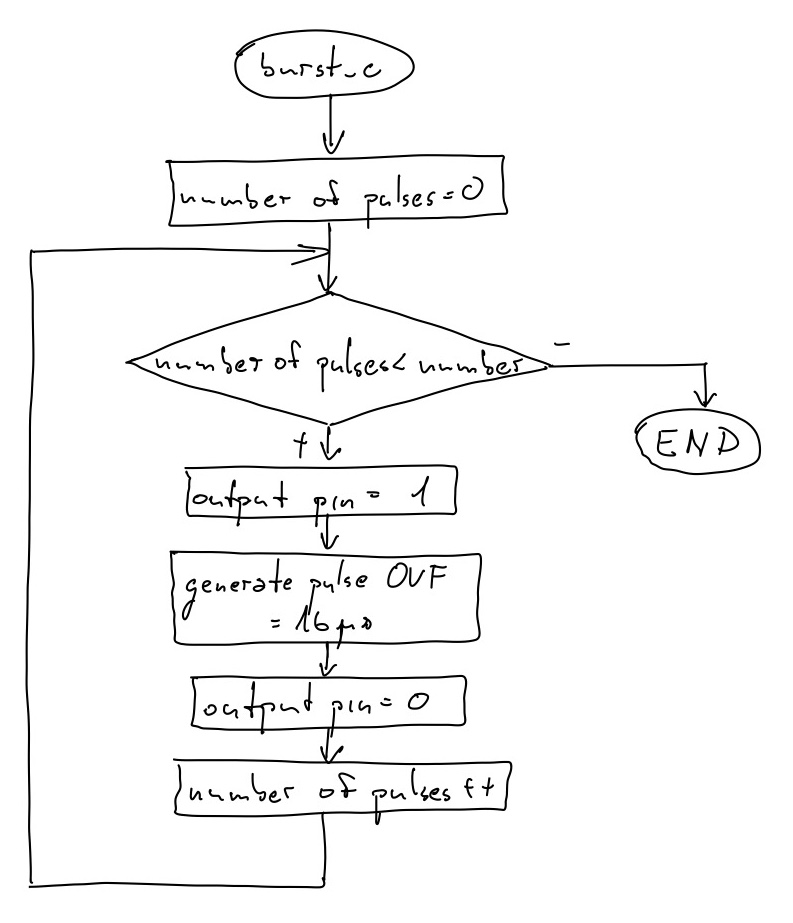 burst_c
number of pulses=0
number of pulses< number
-
END
+
output pin = 1
generate pulse OVF
= 16 μs
output pin = 0
number of pulses ++